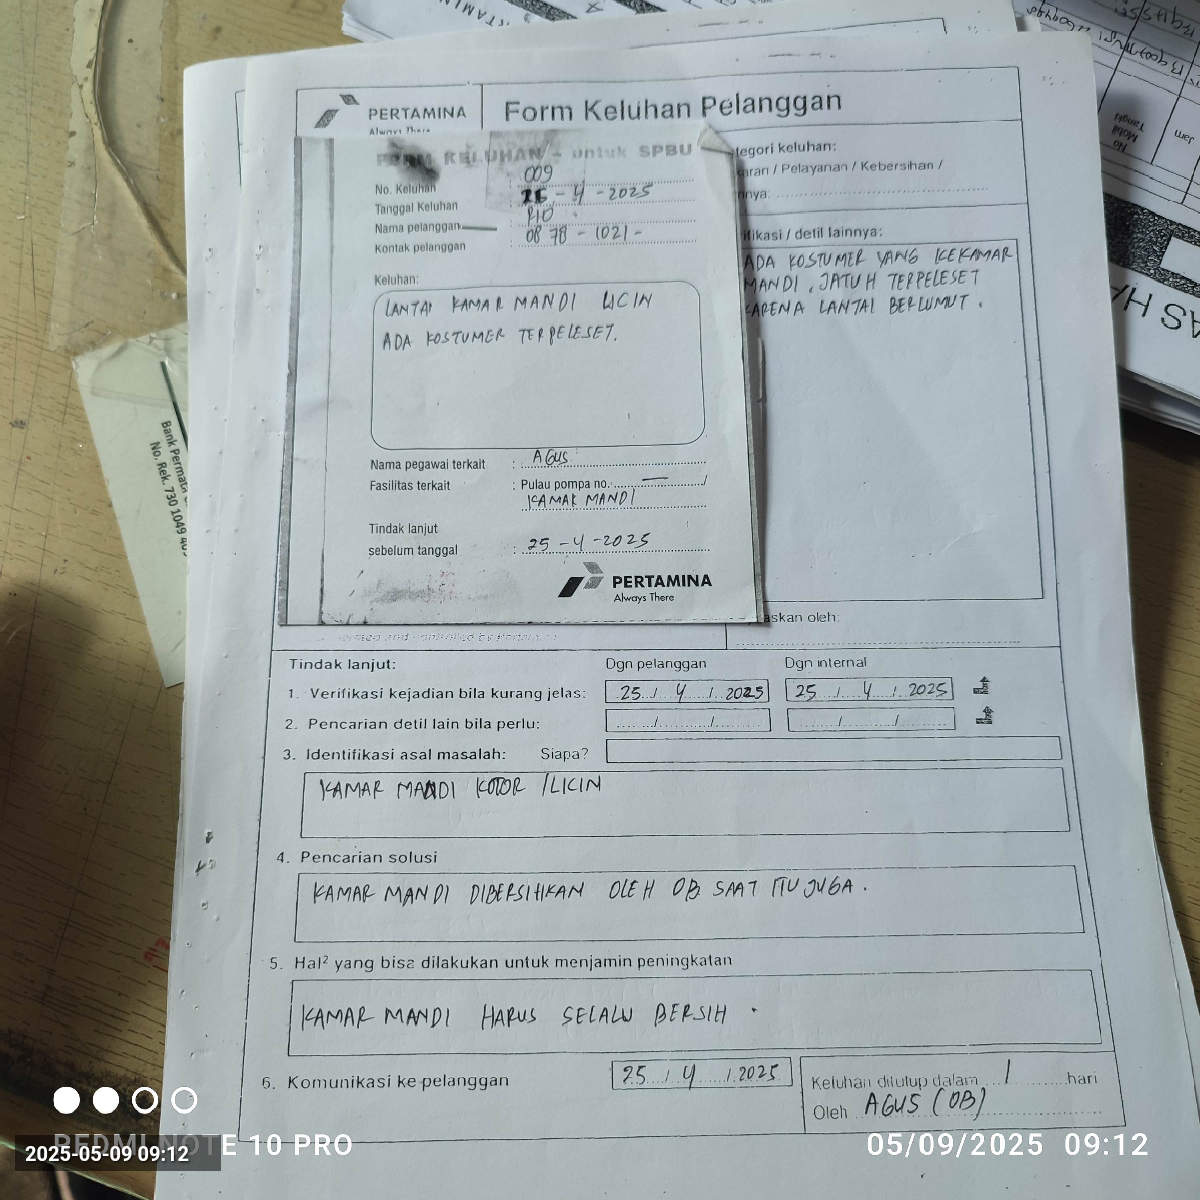 PERTAMINA
Always There
Form Keluhan Pelanggan
FORM KELUHAN - untuk SPBU
No. Keluhan 009
Tanggal Keluhan : - 4 - 2025
Nama pelanggan : RIO
Kontak pelanggan : 0878 - 1021 -
Keluhan:
LANTAI KAMAR MANDI LICIN
ADA KOSTUMER TERPELESET.
Nama pegawai terkait : AGUS
Fasilitas terkait : Pulau pompa no. — /
KAMAR MANDI
Tindak lanjut
sebelum tanggal : 25 - 4 - 2025
PERTAMINA
Always There
tegori keluhan:
aran / Pelayanan / Kebersihan /
nnya:
ifikasi / detil lainnya:
ADA KOSTUMER YANG KEKAMAR
MANDI, JATUH TERPELESET
KARENA LANTAI BERLUMUT.
askan oleh:
Tindak lanjut: Dgn pelanggan Dgn internal
1. Verifikasi kejadian bila kurang jelas: 25 / 4 / 2025 25 / 4 / 2025
2. Pencarian detil lain bila perlu: / / / /
3. Identifikasi asal masalah: Siapa?
KAMAR MANDI KOTOR /LICIN
4. Pencarian solusi
KAMAR MANDI DIBERSIHKAN OLEH OB SAAT ITU JUGA.
5. Hal² yang bisa dilakukan untuk menjamin peningkatan
KAMAR MANDI HARUS SELALU BERSIH .
6. Komunikasi ke pelanggan 25 / 4 / 2025
Keluhan ditutup dalam 1 hari
Oleh AGUS (OB)
Bank Permata
No. Rek. 730 1049
REDMI NOTE 10 PRO
2025-05-09 09:12
05/09/2025 09:12